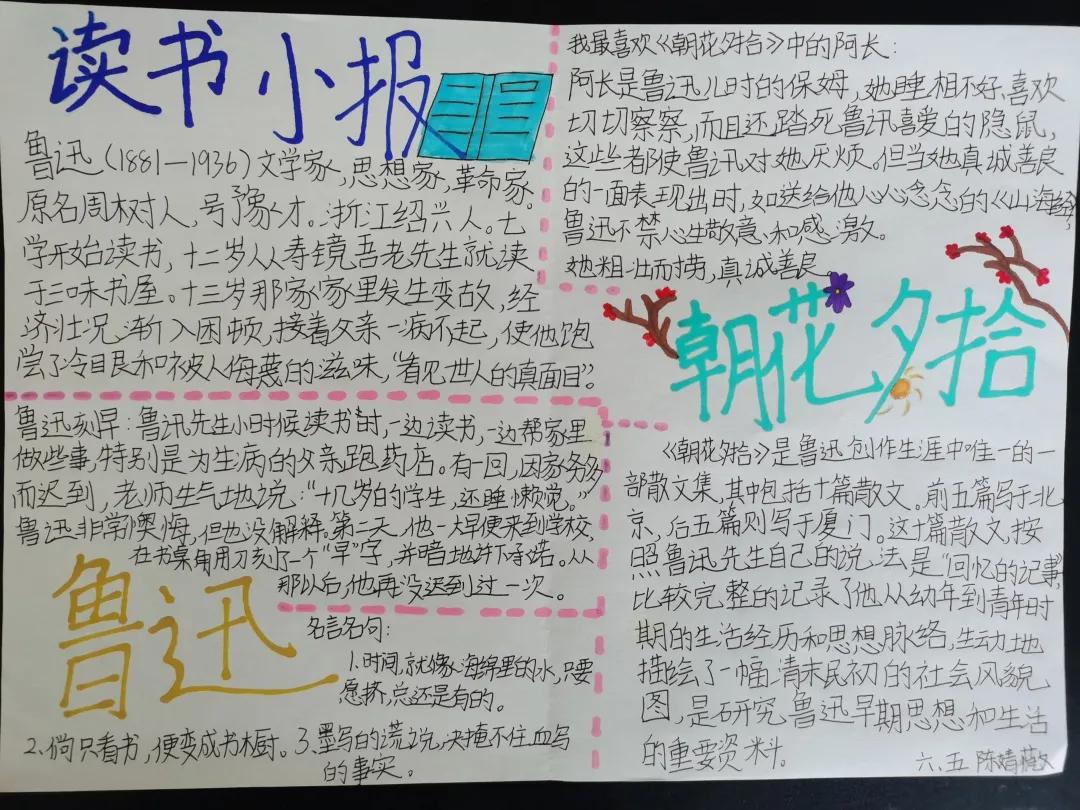 读书小报
鲁迅（1881—1936）文学家，思想家，革命家。
原名周树人，号豫才。浙江绍兴人。七
学开始读书，十二岁从寿镜吾老先生就读
于三味书屋。十三岁那家家里发生变故，经
济壮况渐入困顿，接着父亲一病不起，使他饱
尝了冷目艮和被人侮蔑的滋味，“看见世人的真面目”。
鲁迅刻早：鲁迅先生小时候读书时，一边读书，一边帮家里
做些事，特别是为生病的父亲跑药店。有一回，因家务多
而迟到，老师生气地说：“十几岁的学生，还睡懒觉。”
鲁迅非常懊悔，但他没解释。第二天，他一大早便来到学校，
在书桌角用刀刻了一个“早”字，并暗地许下承诺。从
那以后，他再没迟到过一次。
鲁迅
名言名句：
1.时间，就像海绵里的水，只要
愿挤，总还是有的。
2、倘只看书，便变成书橱。
3.墨写的谎说，决掩不住血写
的事实。
我最喜欢《朝花夕拾》中的阿长：
阿长是鲁迅儿时的保姆，她睡相不好，喜欢
切切察察，而且还踏死鲁迅喜爱的隐鼠，
这些都使鲁迅对她厌烦。但当她真诚善良
的一面表现出时，如送给他心心念念的《山海经》，
鲁迅不禁心生敬意和感激。
她粗壮而捞，真诚善良。
朝花夕拾
《朝花夕拾》是鲁迅创作生涯中唯一的一
部散文集，其中包括十篇散文。前五篇写于北
京，后五篇则写于厦门。这十篇散文，按
照鲁迅先生自己的说法是“回忆的记事”，
比较完整的记录了他从幼年到青年时
期的生活经历和思想脉络，生动地
描绘了一幅清末民初的社会风貌
图，是研究鲁迅早期思想和生活
的重要资料。
六、五 陈婧薇